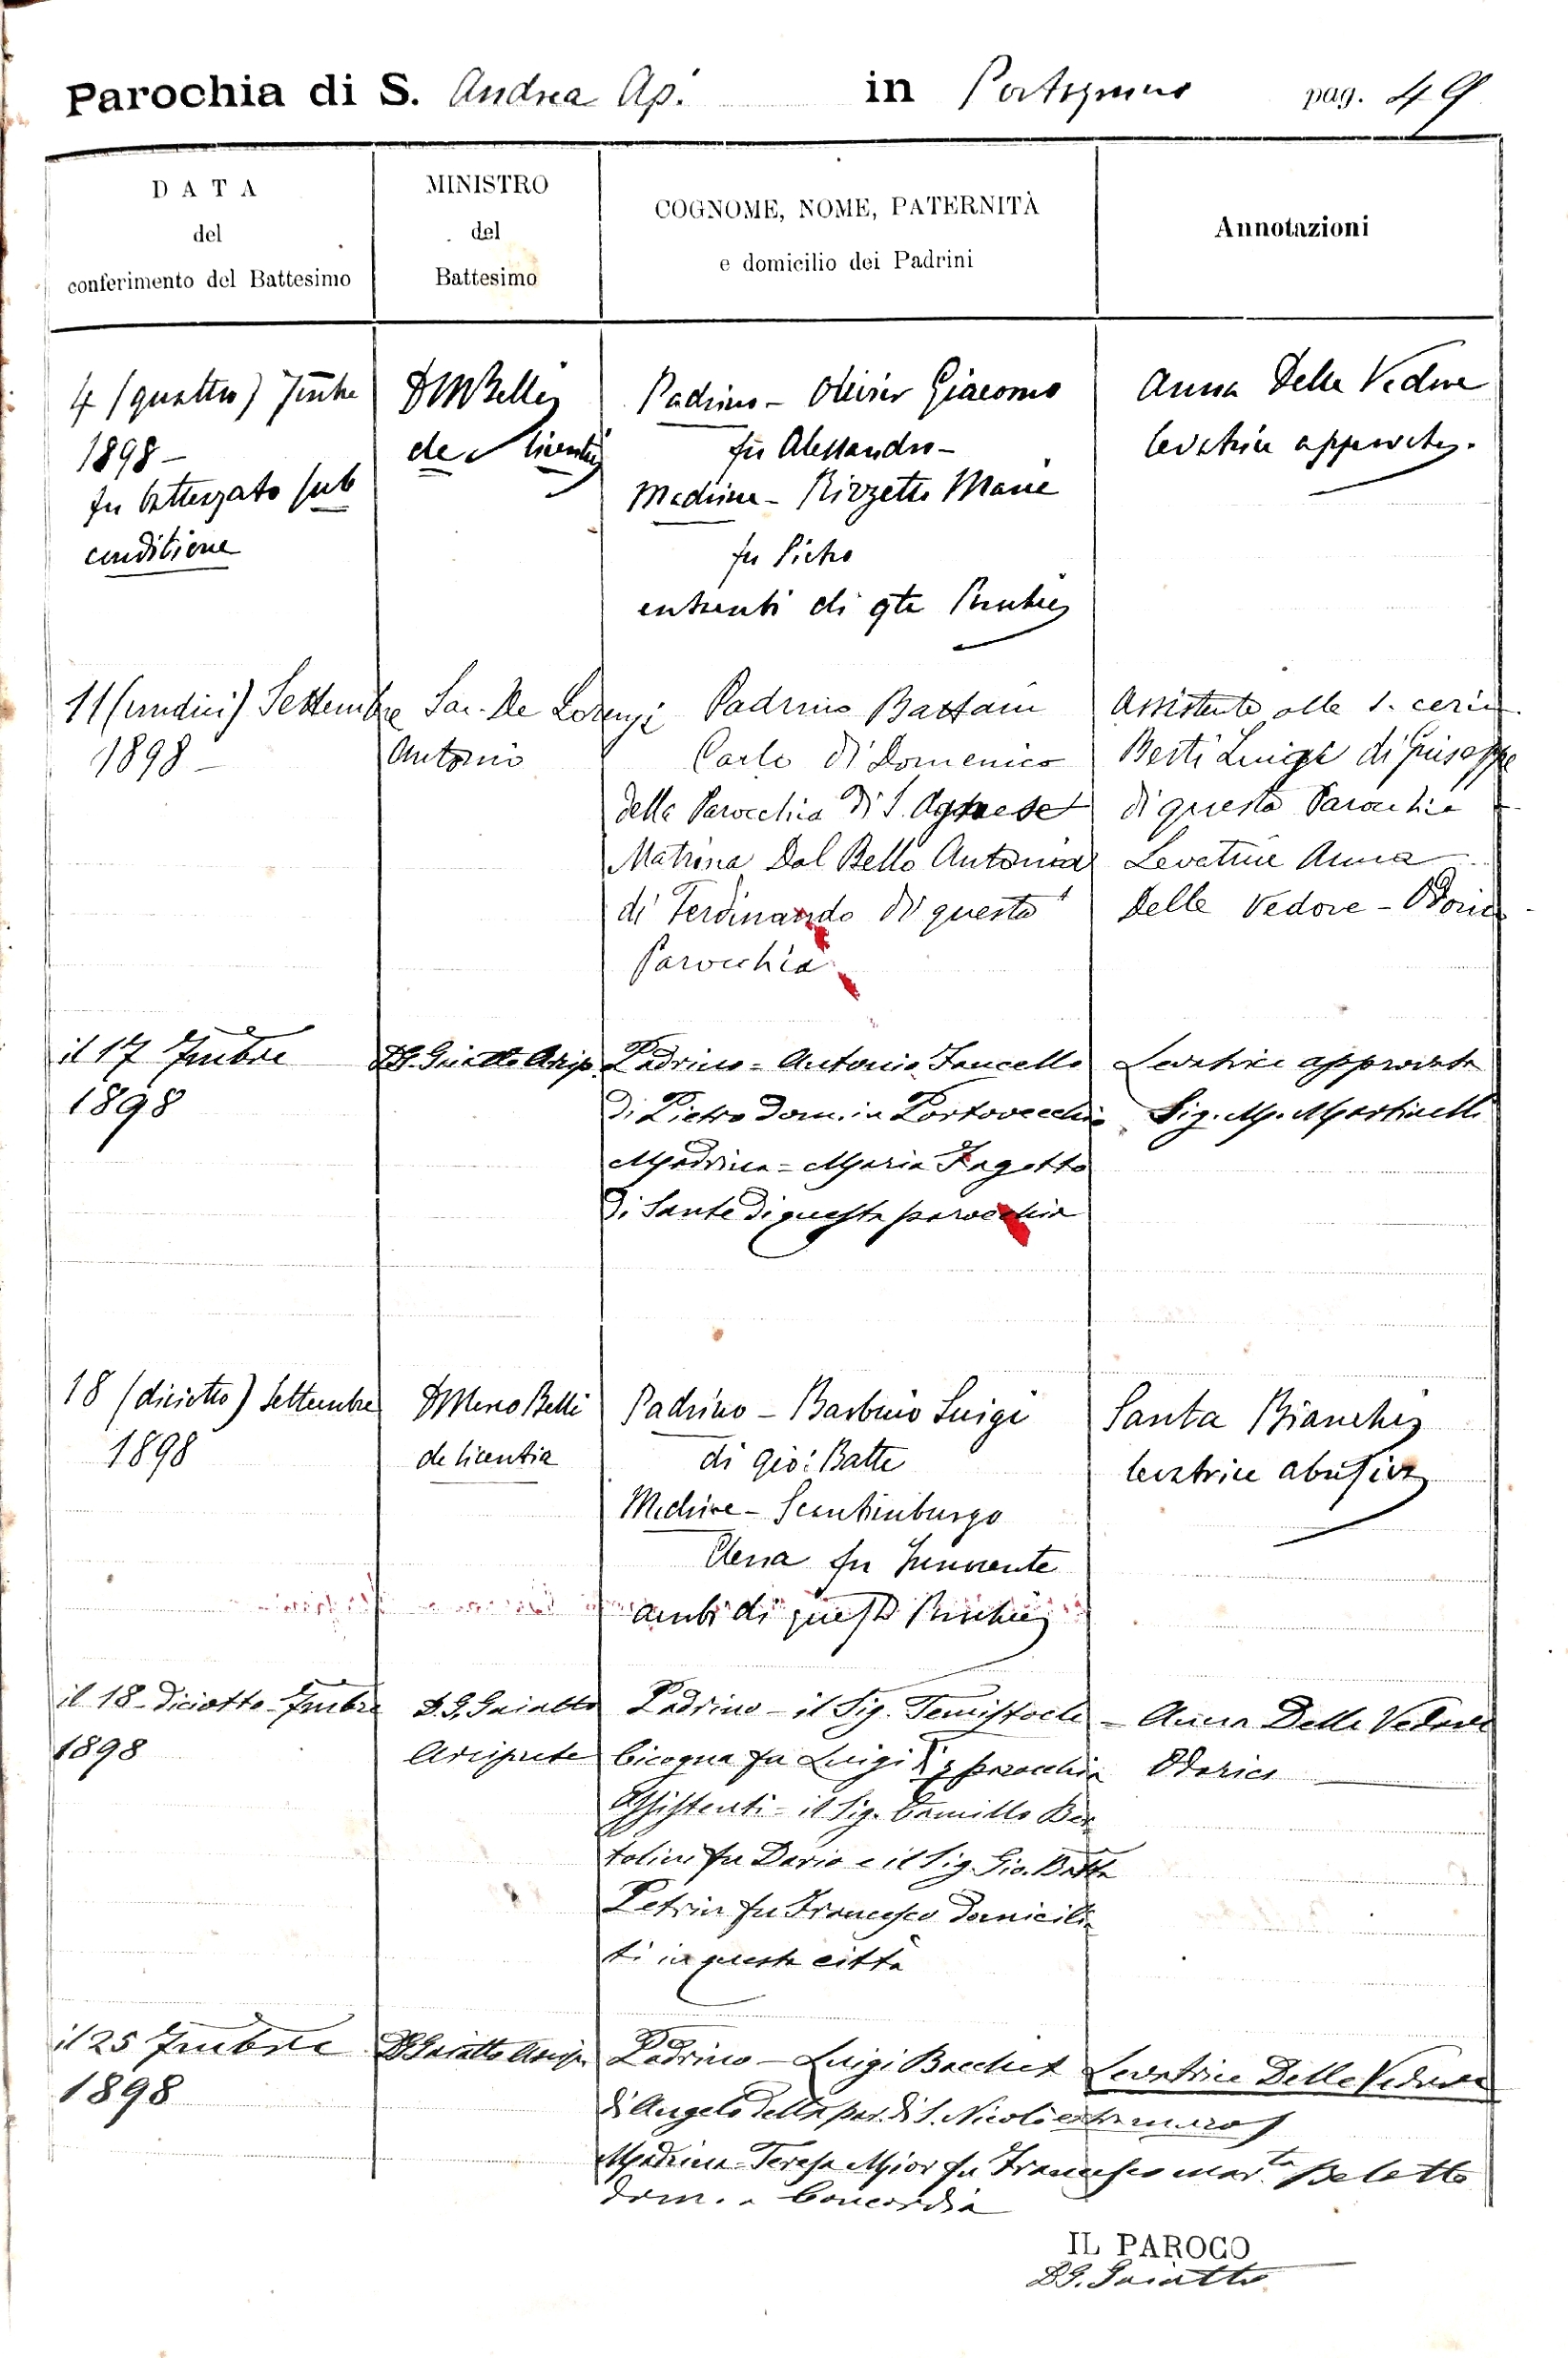 Parochia di S. Andrea Ap. in Portogruaro pag. 49
DATA
del
conferimento del Battesimo
MINISTRO
del
Battesimo
COGNOME, NOME, PATERNITÀ
e domicilio dei Padrini
Annotazioni
4 (quattro) 7mbre
1898 -
fu battezzato sub
conditione
D M Belli
de licentia
Padrino - Olivier Giacomo
fu Alessandro -
Madrina - Rizzetto Maria
fu Pietro
entrambi di qta
Anna Delle Vedove
levatrice approvata.
11 (undici) Settembre
1898 -
Sac. De Lorenzi
Antonio
Padrino
Carlo di Domenico
della Parocchia di S. Agnese
Matrina Dal Bello Antonia
di Ferdinando di questa
Parocchia
Assistente alle s. cerim.
Berti Luigi di Giuseppe
di questa Parocchia
Levatrice Anna
Delle Vedove - Odorico
il 17 7mbre
1898
D G. Gaiatto Arcip.
Padrino = Antonio Fancello
di Pietro dom. in Portovecchio
Madrina = Maria Fagotto
di Sante di questa parocchia
Levatrice approvata
Sig. M. Martinelli
18 (diciotto) Settembre
1898
D Marco Belli
de licentia
Padrino - Barbuio Luigi
di Gio: Batta
Madrina - Scantimburgo
Elena fu Innocente
ambi di questa
Santa Bianchi
levatrice abusiva
il 18 - diciotto - 7mbre
1898
D. G. Gaiatto
Arciprete
Padrino - il Sig. Temistocle
Bicogna fu Luigi di q parocchia
Assistenti = il Sig. Camillo Ber
tolini fu Dario e il Sig. Gio. Batta
Petrin fu Francesco domicilia
ti in questa città
- Anna Delle Vedove
Odorico
il 25 7mbre
1898
D G Gaiatto Arcip.
Padrino - Luigi Bacchet
di Angelo della par. di S. Nicolò extra muros
Madrina = Teresa Mior fu Francesco mar.ta Beletto
dom. a Concordia
Levatrice Delle Vedove
IL PAROCO
D G. Gaiatto